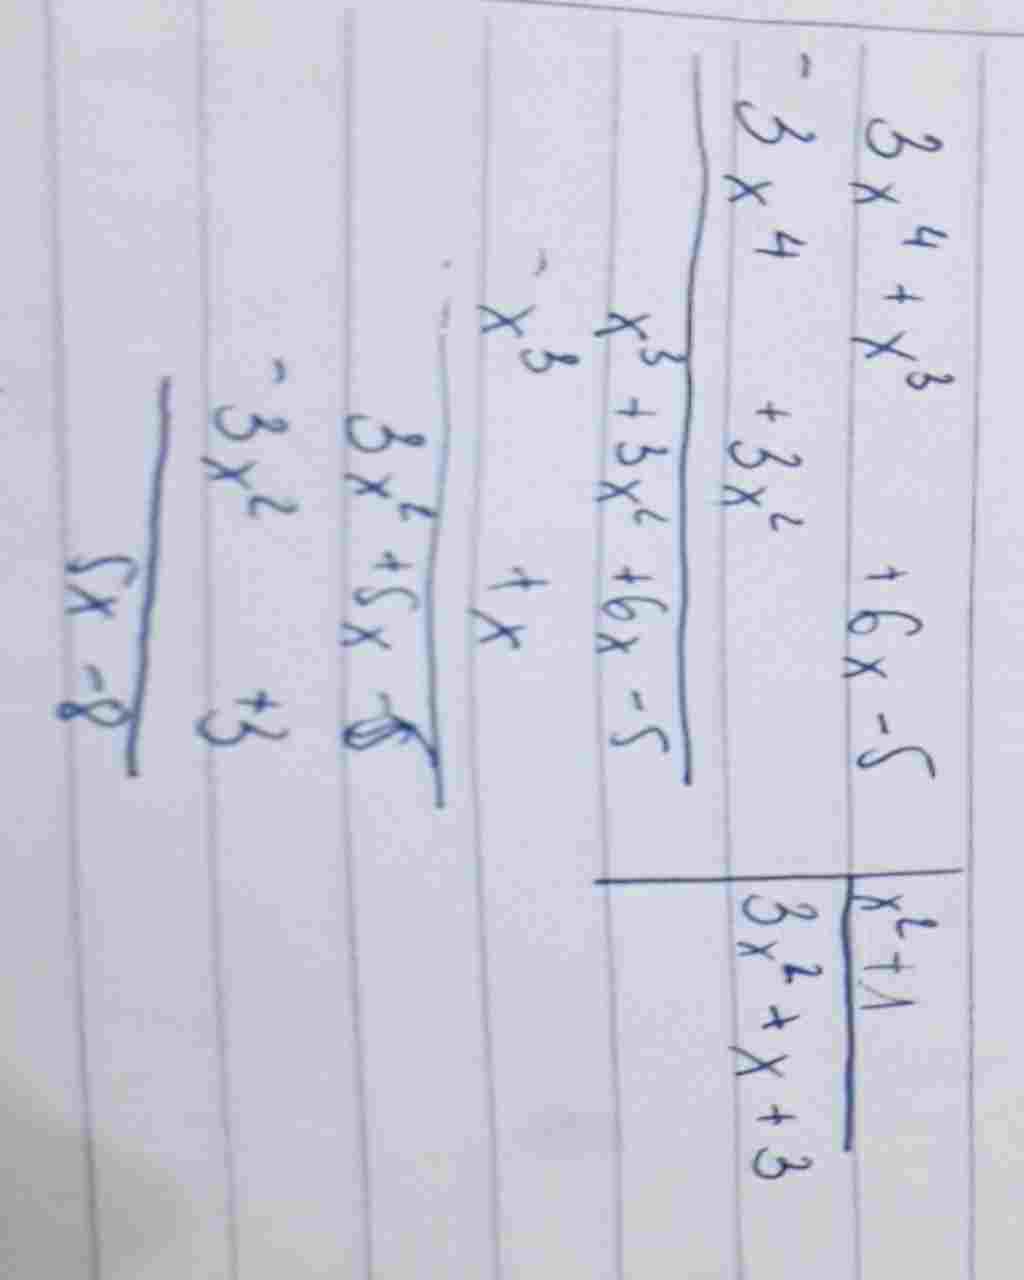 3x⁴ + x³ + 6x - 5 | x² + 1
- 3x⁴ + 3x² | 3x² + x + 3
x³ + 3x² + 6x - 5
- x³ + x
3x² + 5x -
- 3x² + 3
5x - 8